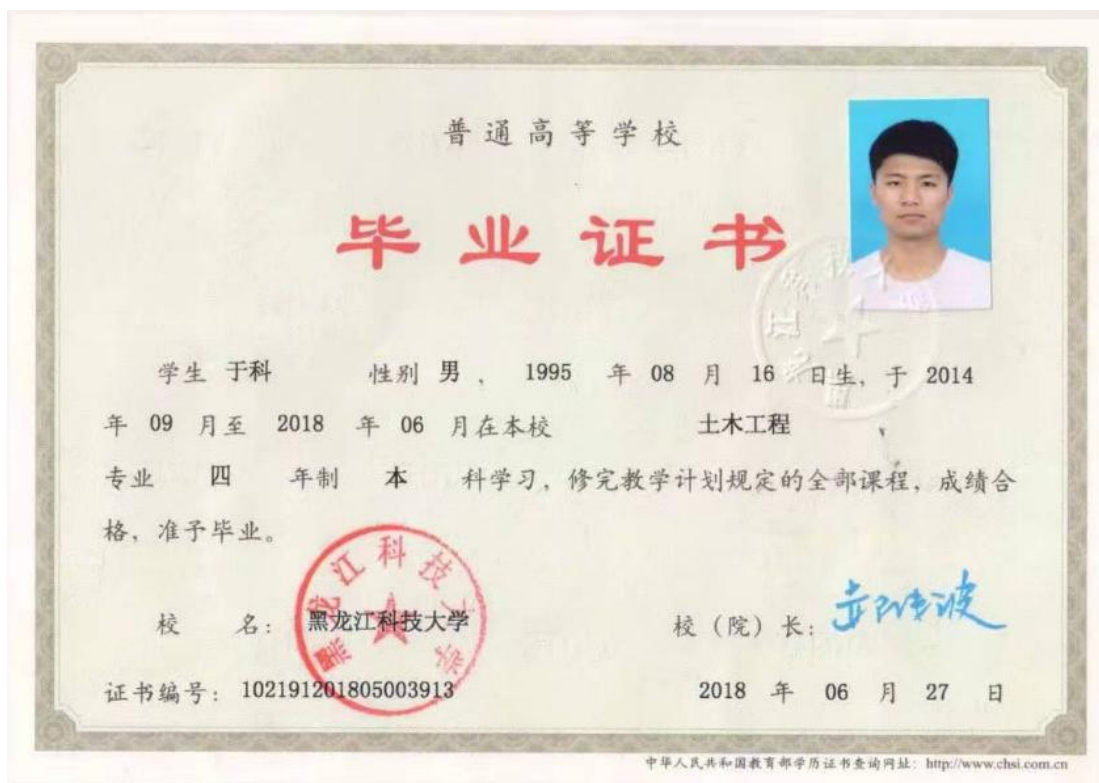 普通高等学校
毕业证书
学生 于科 性别 男 、 1995 年 08 月 16 日生, 于 2014
年 09 月至 2018 年 06 月在本校 土木工程
专业 四 年制 本 科学习, 修完教学计划规定的全部课程, 成绩合
格, 准予毕业。
黑龙江科技大学
校 名: 黑龙江科技大学 校(院)长:
证书编号: 102191201805003913 2018 年 06 月 27 日
中华人民共和国教育部学历证书查询网址: http://www.chsi.com.cn